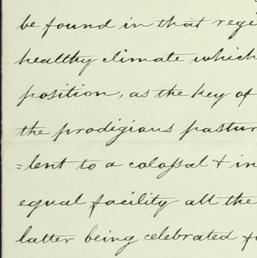 be found in that regi
healthy climate which
position, as the key of
the prodigious pastur
=lent to a colossal + in
equal facility all the
latter being celebrated fo